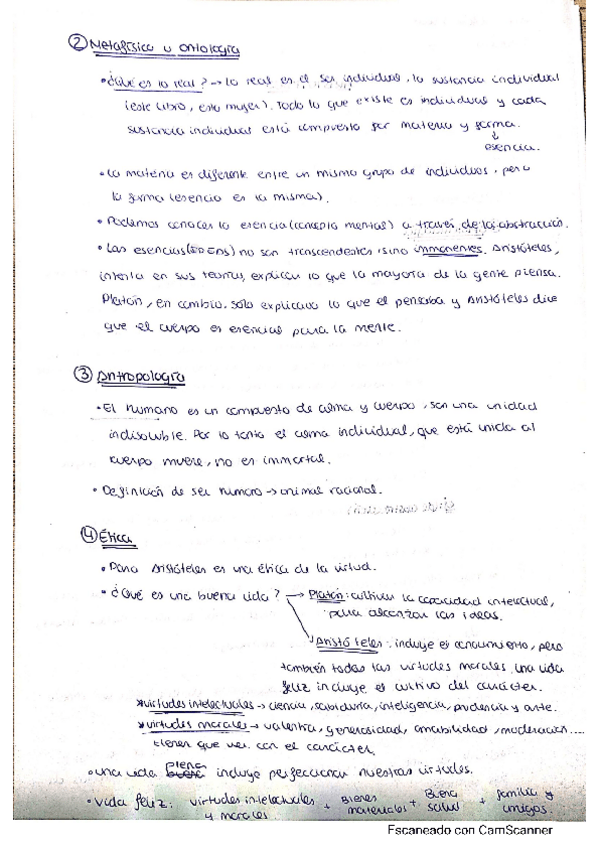 ② Metafísica u ontología
• ¿Qué es lo real? → Lo real es el ser individual, la sustancia individual
(este libro, esta mujer). Todo lo que existe es individual y cada
sustancia individual está compuesta por materia y forma.
↓
esencia.
• La materia es diferente entre un mismo grupo de individuos, pero
la forma (esencia es la misma).
• Podemos conocer la esencia (concepto mental) a través de la abstracción.
• Las esencias (IDEAS) no son transcendentes sino inmanentes. Aristóteles,
intenta en sus teorías, explicar lo que la mayoría de la gente piensa.
Platón, en cambio, sólo explicaba lo que el pensaba y Aristóteles dice
que el cuerpo es esencial para la mente.
③ Antropología
• El humano es un compuesto de alma y cuerpo, son una unidad
indisoluble. Por lo tanto el alma individual, que está unida al
cuerpo muere, no es inmortal.
• Definición de ser humano → animal racional.
④ Ética
• Para Aristóteles es una ética de la virtud.
• ¿Qué es una buena vida? → Platón: cultivar la capacidad intelectual,
para alcanzar las ideas.
Aristóteles: incluye el conocimiento, pero
también todas las virtudes morales. una vida
feliz incluye el cultivo del carácter.
*virtudes intelectuales → ciencia, sabiduría, inteligencia, prudencia y arte.
*virtudes morales → valentía, generosidad, amabilidad, moderación.....
tienen que ver con el carácter.
• una vida plena incluye perfeccionar nuestras virtudes.
• Vida feliz: virtudes intelectuales y morales + Bienes materiales + Buena salud + familia y amigos.
Escaneado con CamScanner